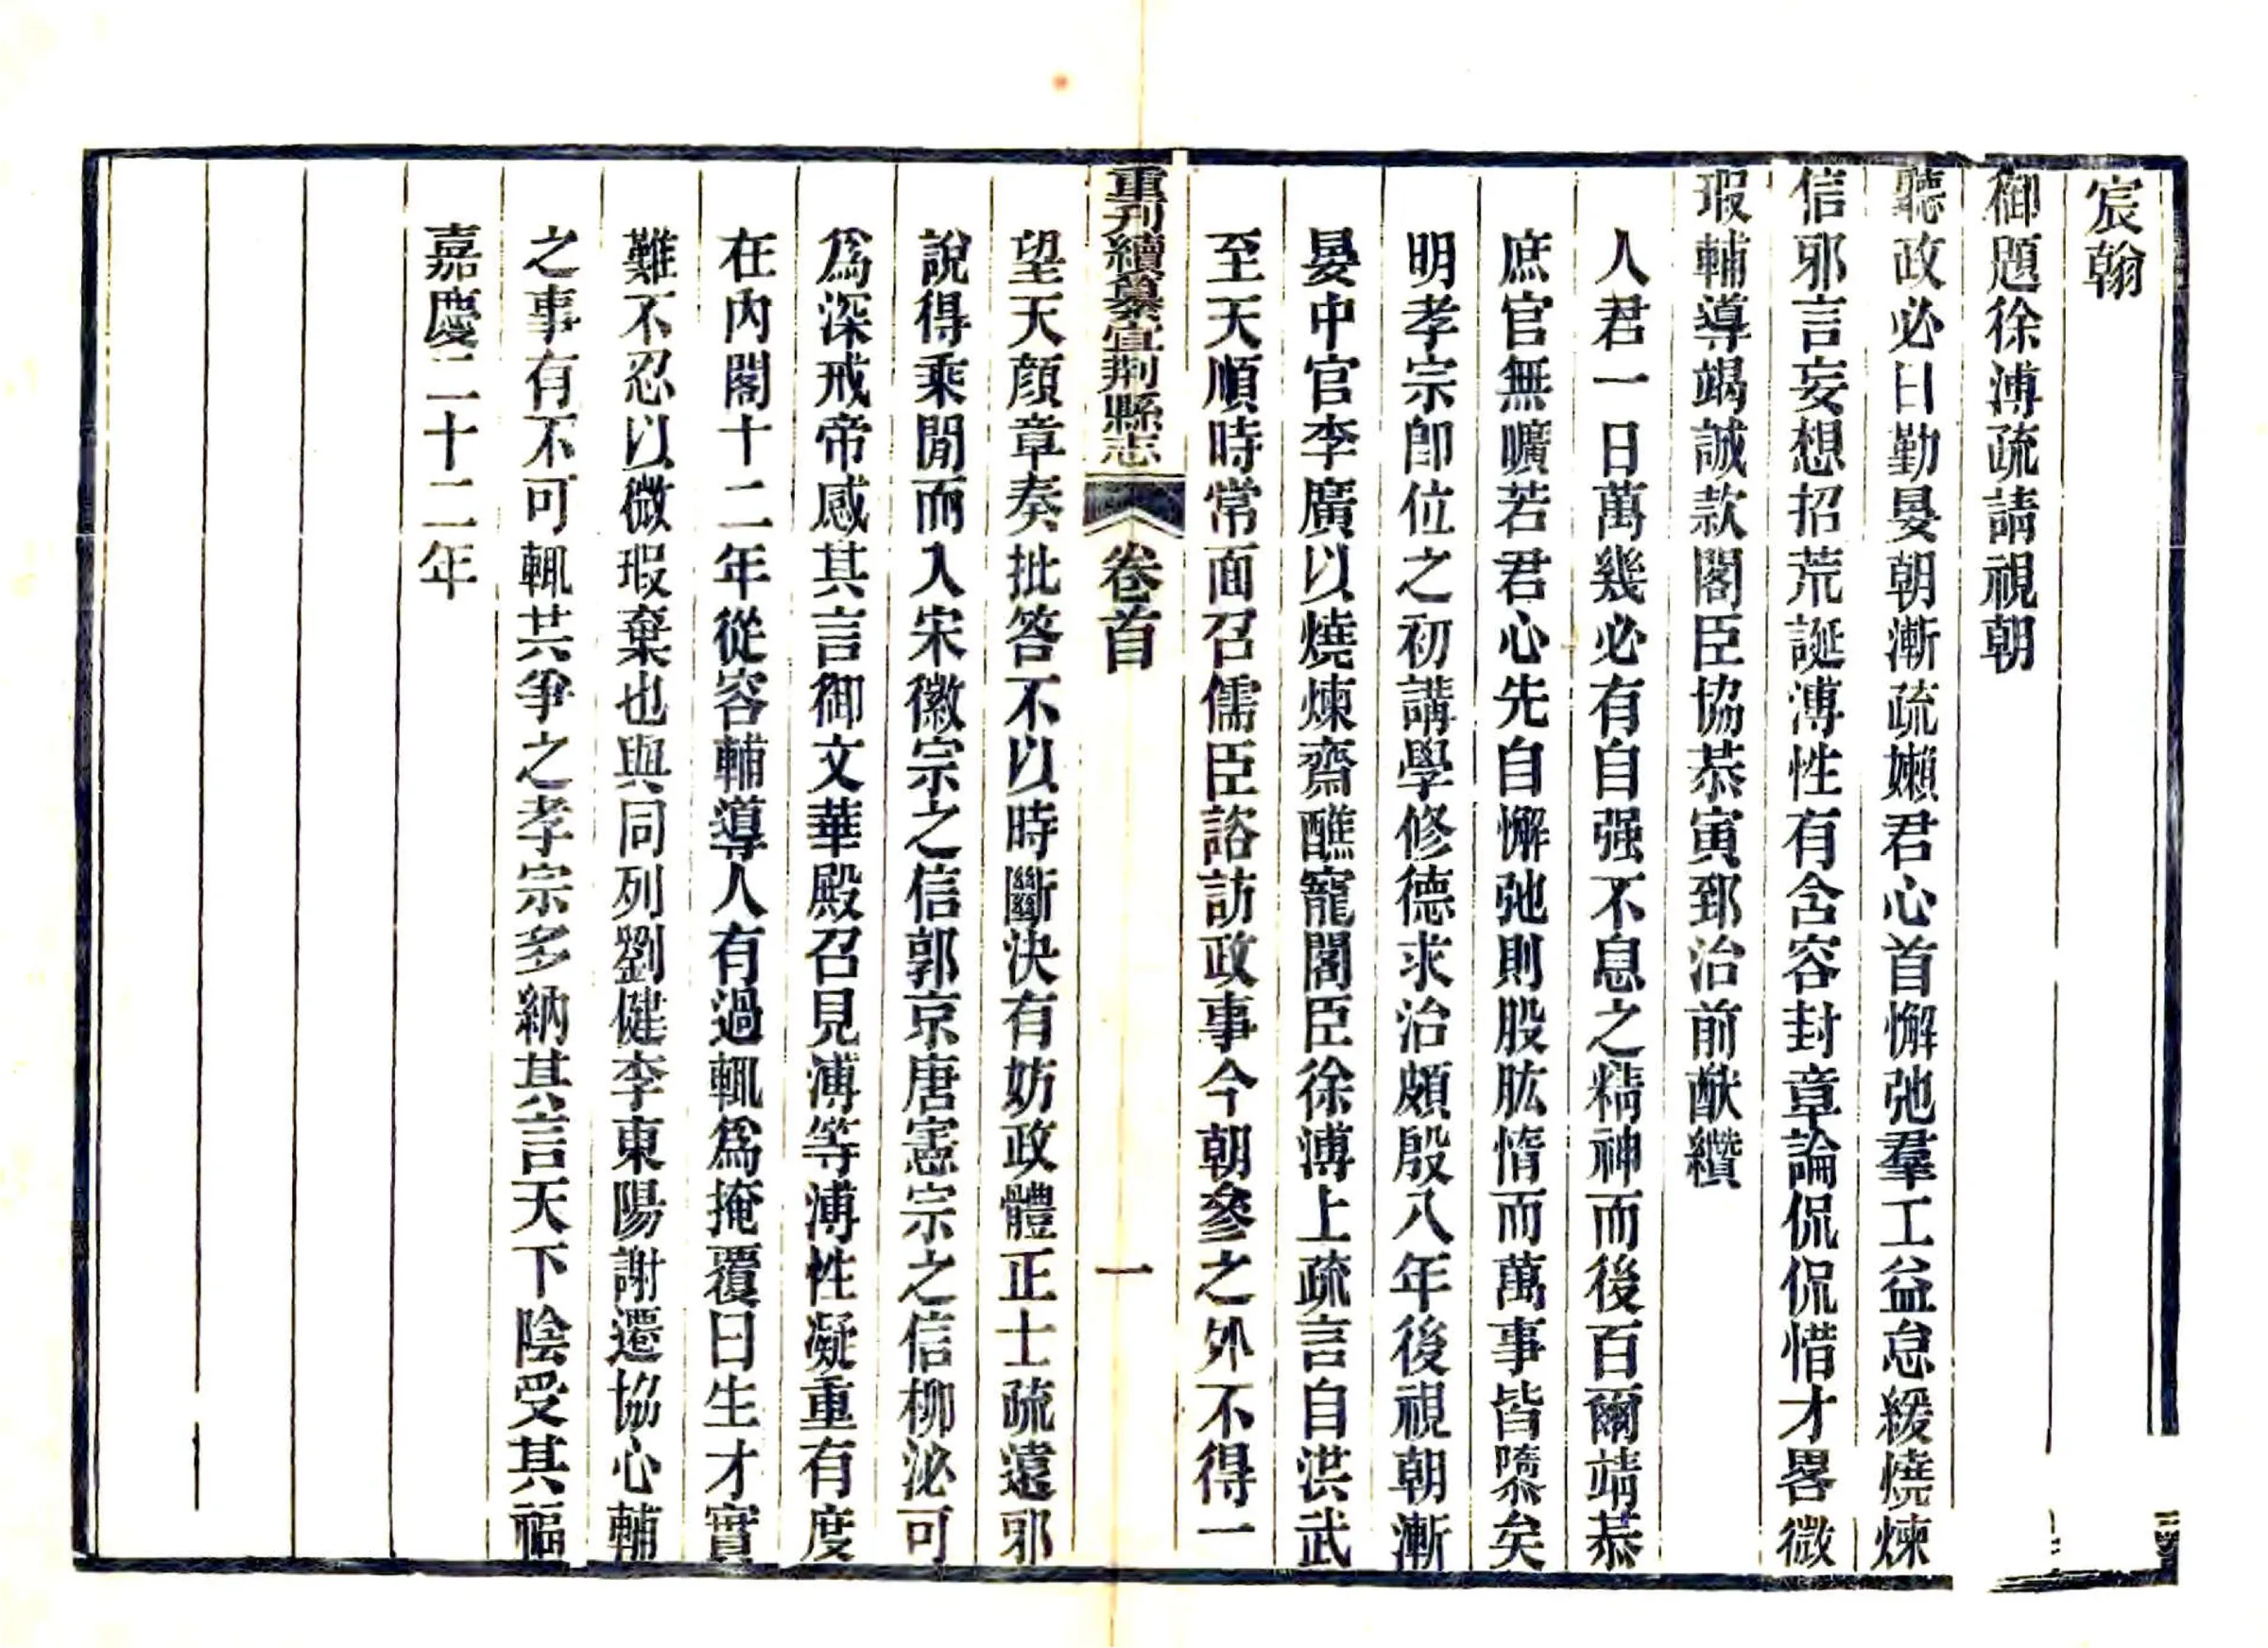 宸翰
御題徐溥疏請視朝
聽政必日勤晏朝漸疏嬾君心首懈弛羣工益怠緩燒煉
信邪言妄想招荒誕溥性有含容封章論侃侃惜才畧微
瑕輔導竭誠款閣臣協恭寅郅治前猷纘
人君一日萬幾必有自强不息之精神而後百爾靖恭
庶官無曠若君心先自懈弛則股肱惰而萬事皆隳矣
明孝宗卽位之初講學修德求治頗殷八年後視朝漸
晏中官李廣以燒煉齋醮寵閣臣徐溥上疏言自洪武
至天順時常面召儒臣諮訪政事今朝參之外不得一
重刊續纂宜荆縣志 卷首 一
望天顔章奏批答不以時斷決有妨政體正士疏遠邪
說得乘閒而入宋徽宗之信郭京唐憲宗之信柳泌可
爲深戒帝感其言御文華殿召見溥等溥性凝重有度
在內閣十二年從容輔導人有過輒爲掩覆曰生才實
難不忍以微瑕棄也與同列劉健李東陽謝遷協心輔
之事有不可輒共爭之孝宗多納其言天下陰受其福
嘉慶二十二年